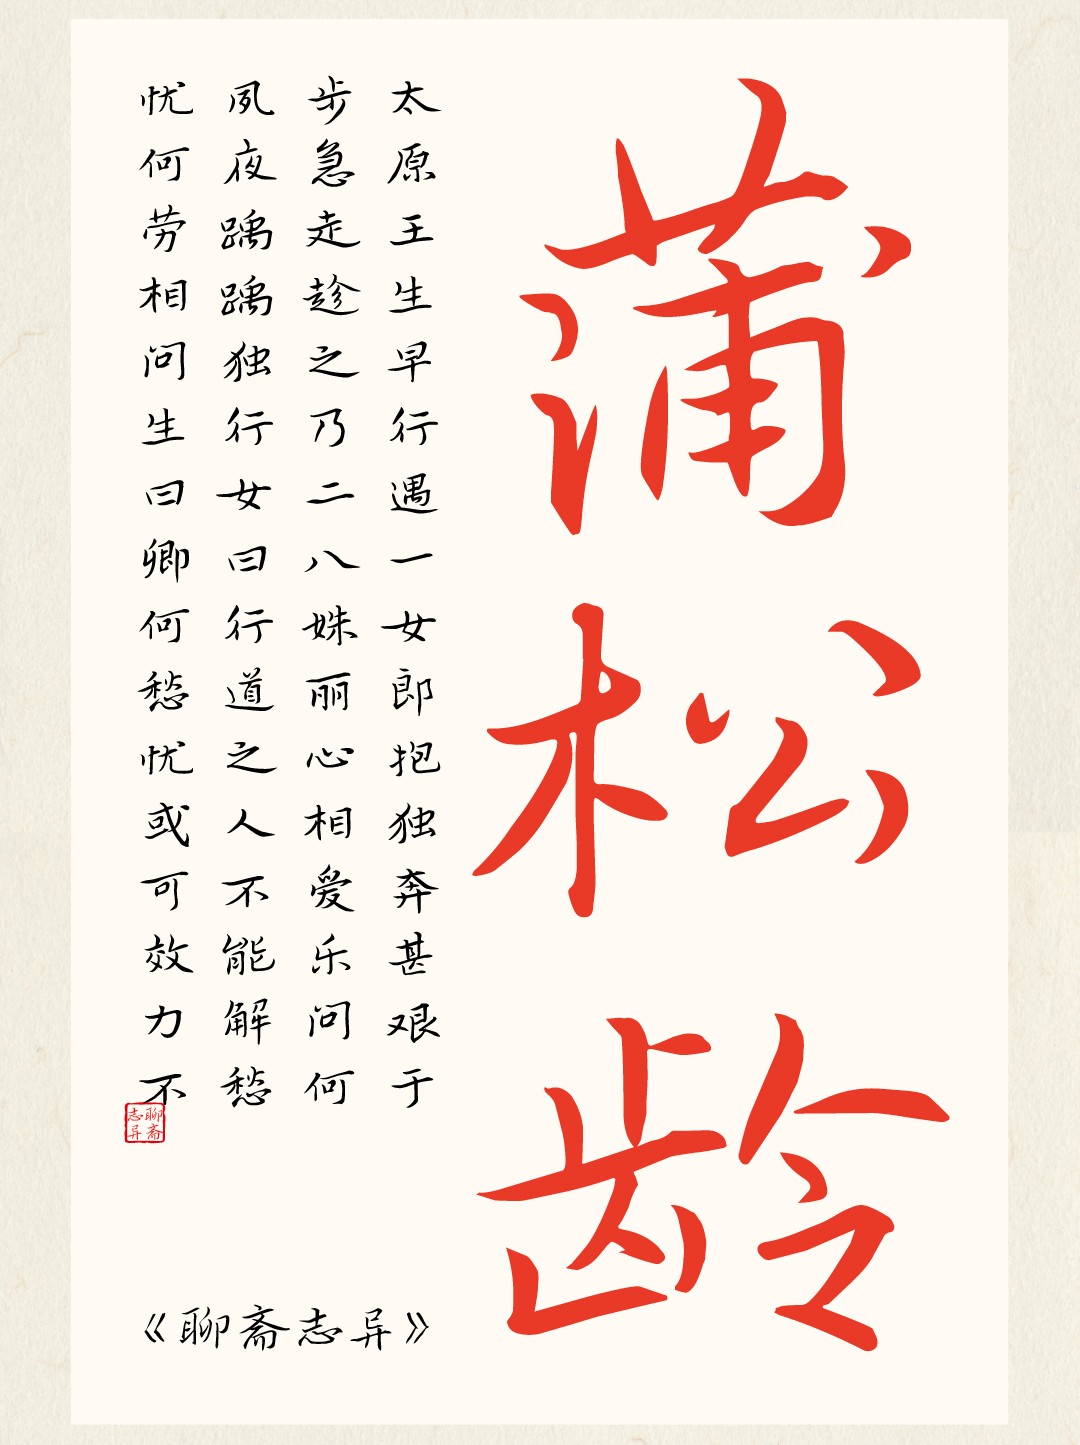 蒲松龄
太原王生早行遇一女郎抱独奔甚艰于
步急走趁之乃二八姝丽心相爱乐问何
夙夜踽踽独行女曰行道之人不能解愁
忧何劳相问生曰卿何愁忧或可效力不
聊斋志异
《聊斋志异》